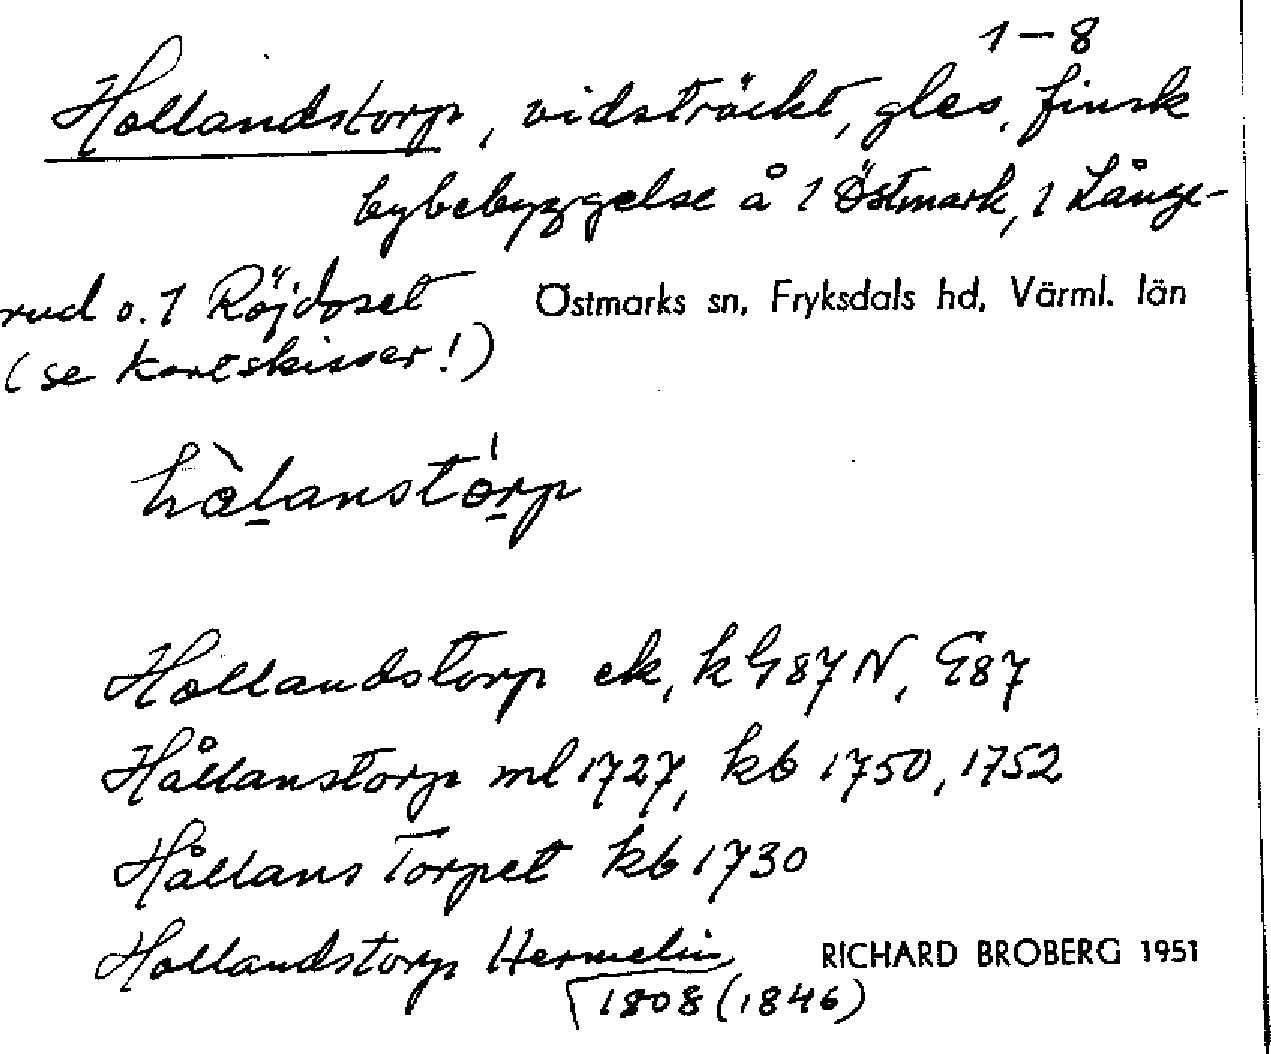 1 – 8
Hollandstorp, vidsträckt, gles, finsk
bybebyggelse å 1 Östmark, 1 Långe-
rud o. 1 Röjdoset
Östmarks sn, Fryksdals hd, Värml. län
(se kartskisser!)
hòlanstórp
Hollandstorp ek, k G87N, G87
Hållanstorp ml 1727, kb 1750, 1752
Hållans Torpet kb 1730
Hollandstorp Hermelin
RICHARD BROBERG 1951
1808 (1846)